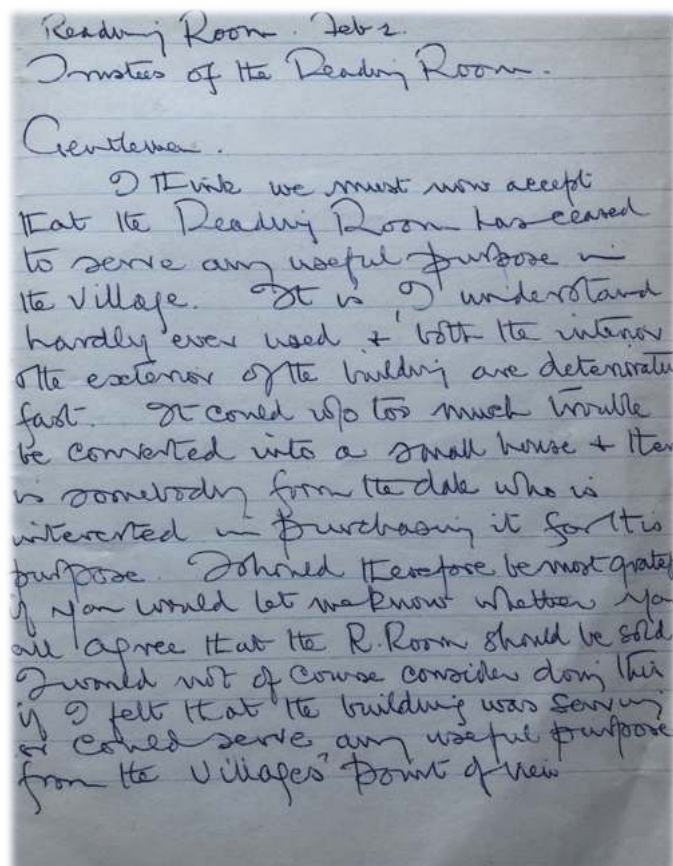 Reading Room. Feb 2.
Trustees of the Reading Room.
Gentlemen.
I think we must now accept
that the Reading Room has ceased
to serve any useful purpose in
the village. It is, I understand
hardly ever used + both the interior
& the exterior of the building are deteriorati
fast. It could w/o too much trouble
be converted into a small house + ther
is somebody from the dale who is
interested in purchasing it for this
purpose. I should therefore be most gratef
if you would let me know whether you
all agree that the R. Room should be sold
I would not of course consider doing this
if I felt that the building was serving
or could serve any useful purpose
from the villages' point of view